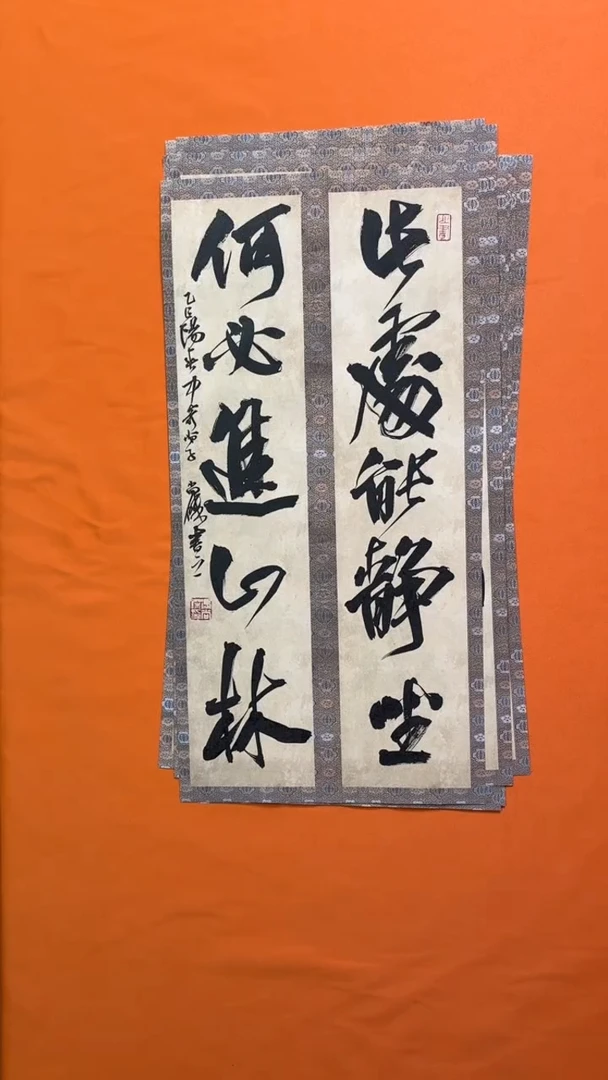 此處能靜坐
何必進山林
乙巳陽春
書